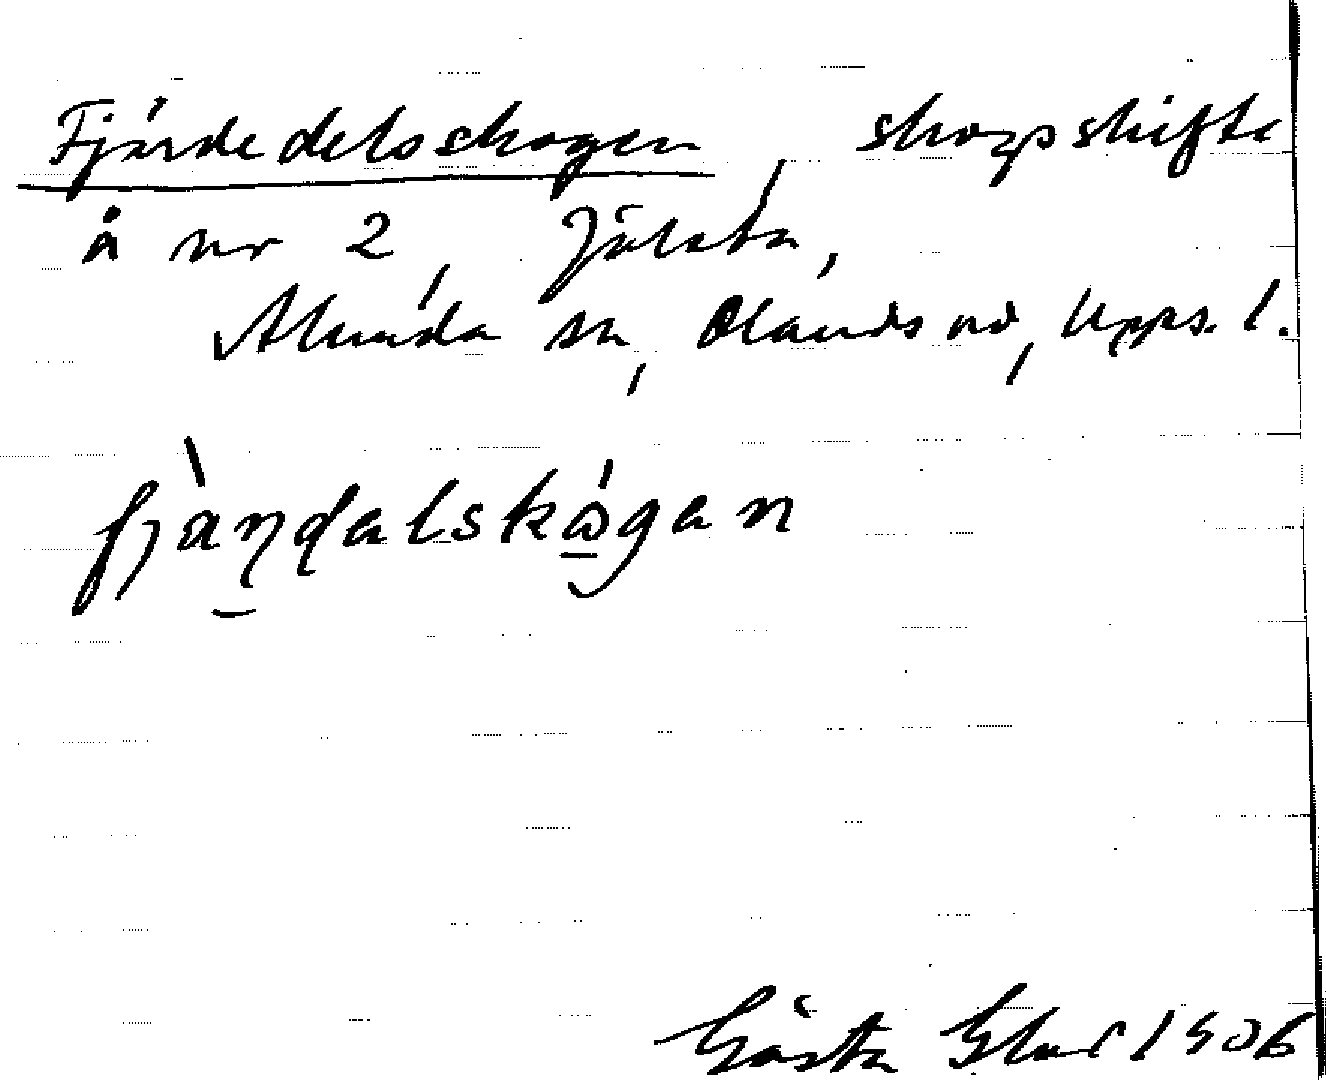 Fjärdedelsskogen, skogsskifte
å nr 2, Jälsta,
Alunda sn, Olands hd, Upps. l.
fjäɳɖalskågan
Gösta 1906